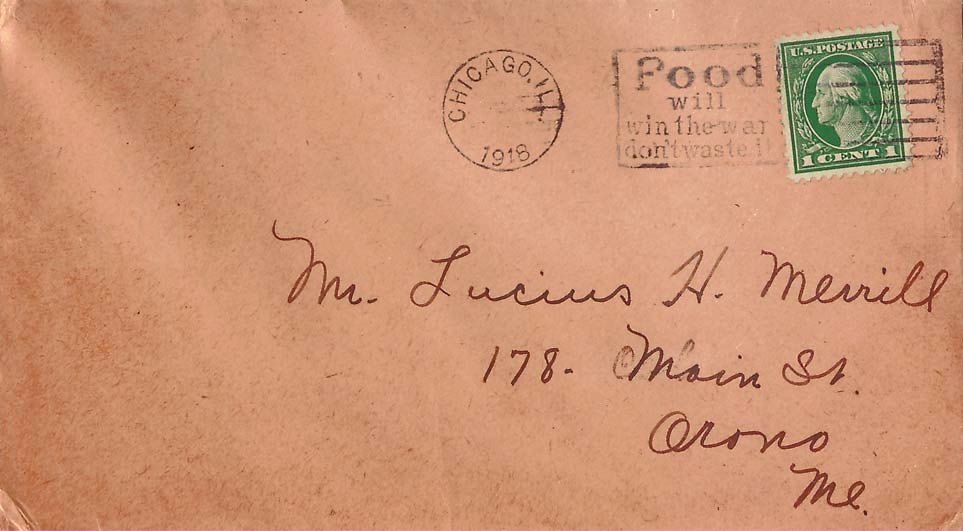 CHICAGO, ILL.
1918
Food
will
win the war
don't waste it
U.S. POSTAGE
1 CENT 1
Mr. Lucius H. Merrill
178- Main St.
Orono
Me.